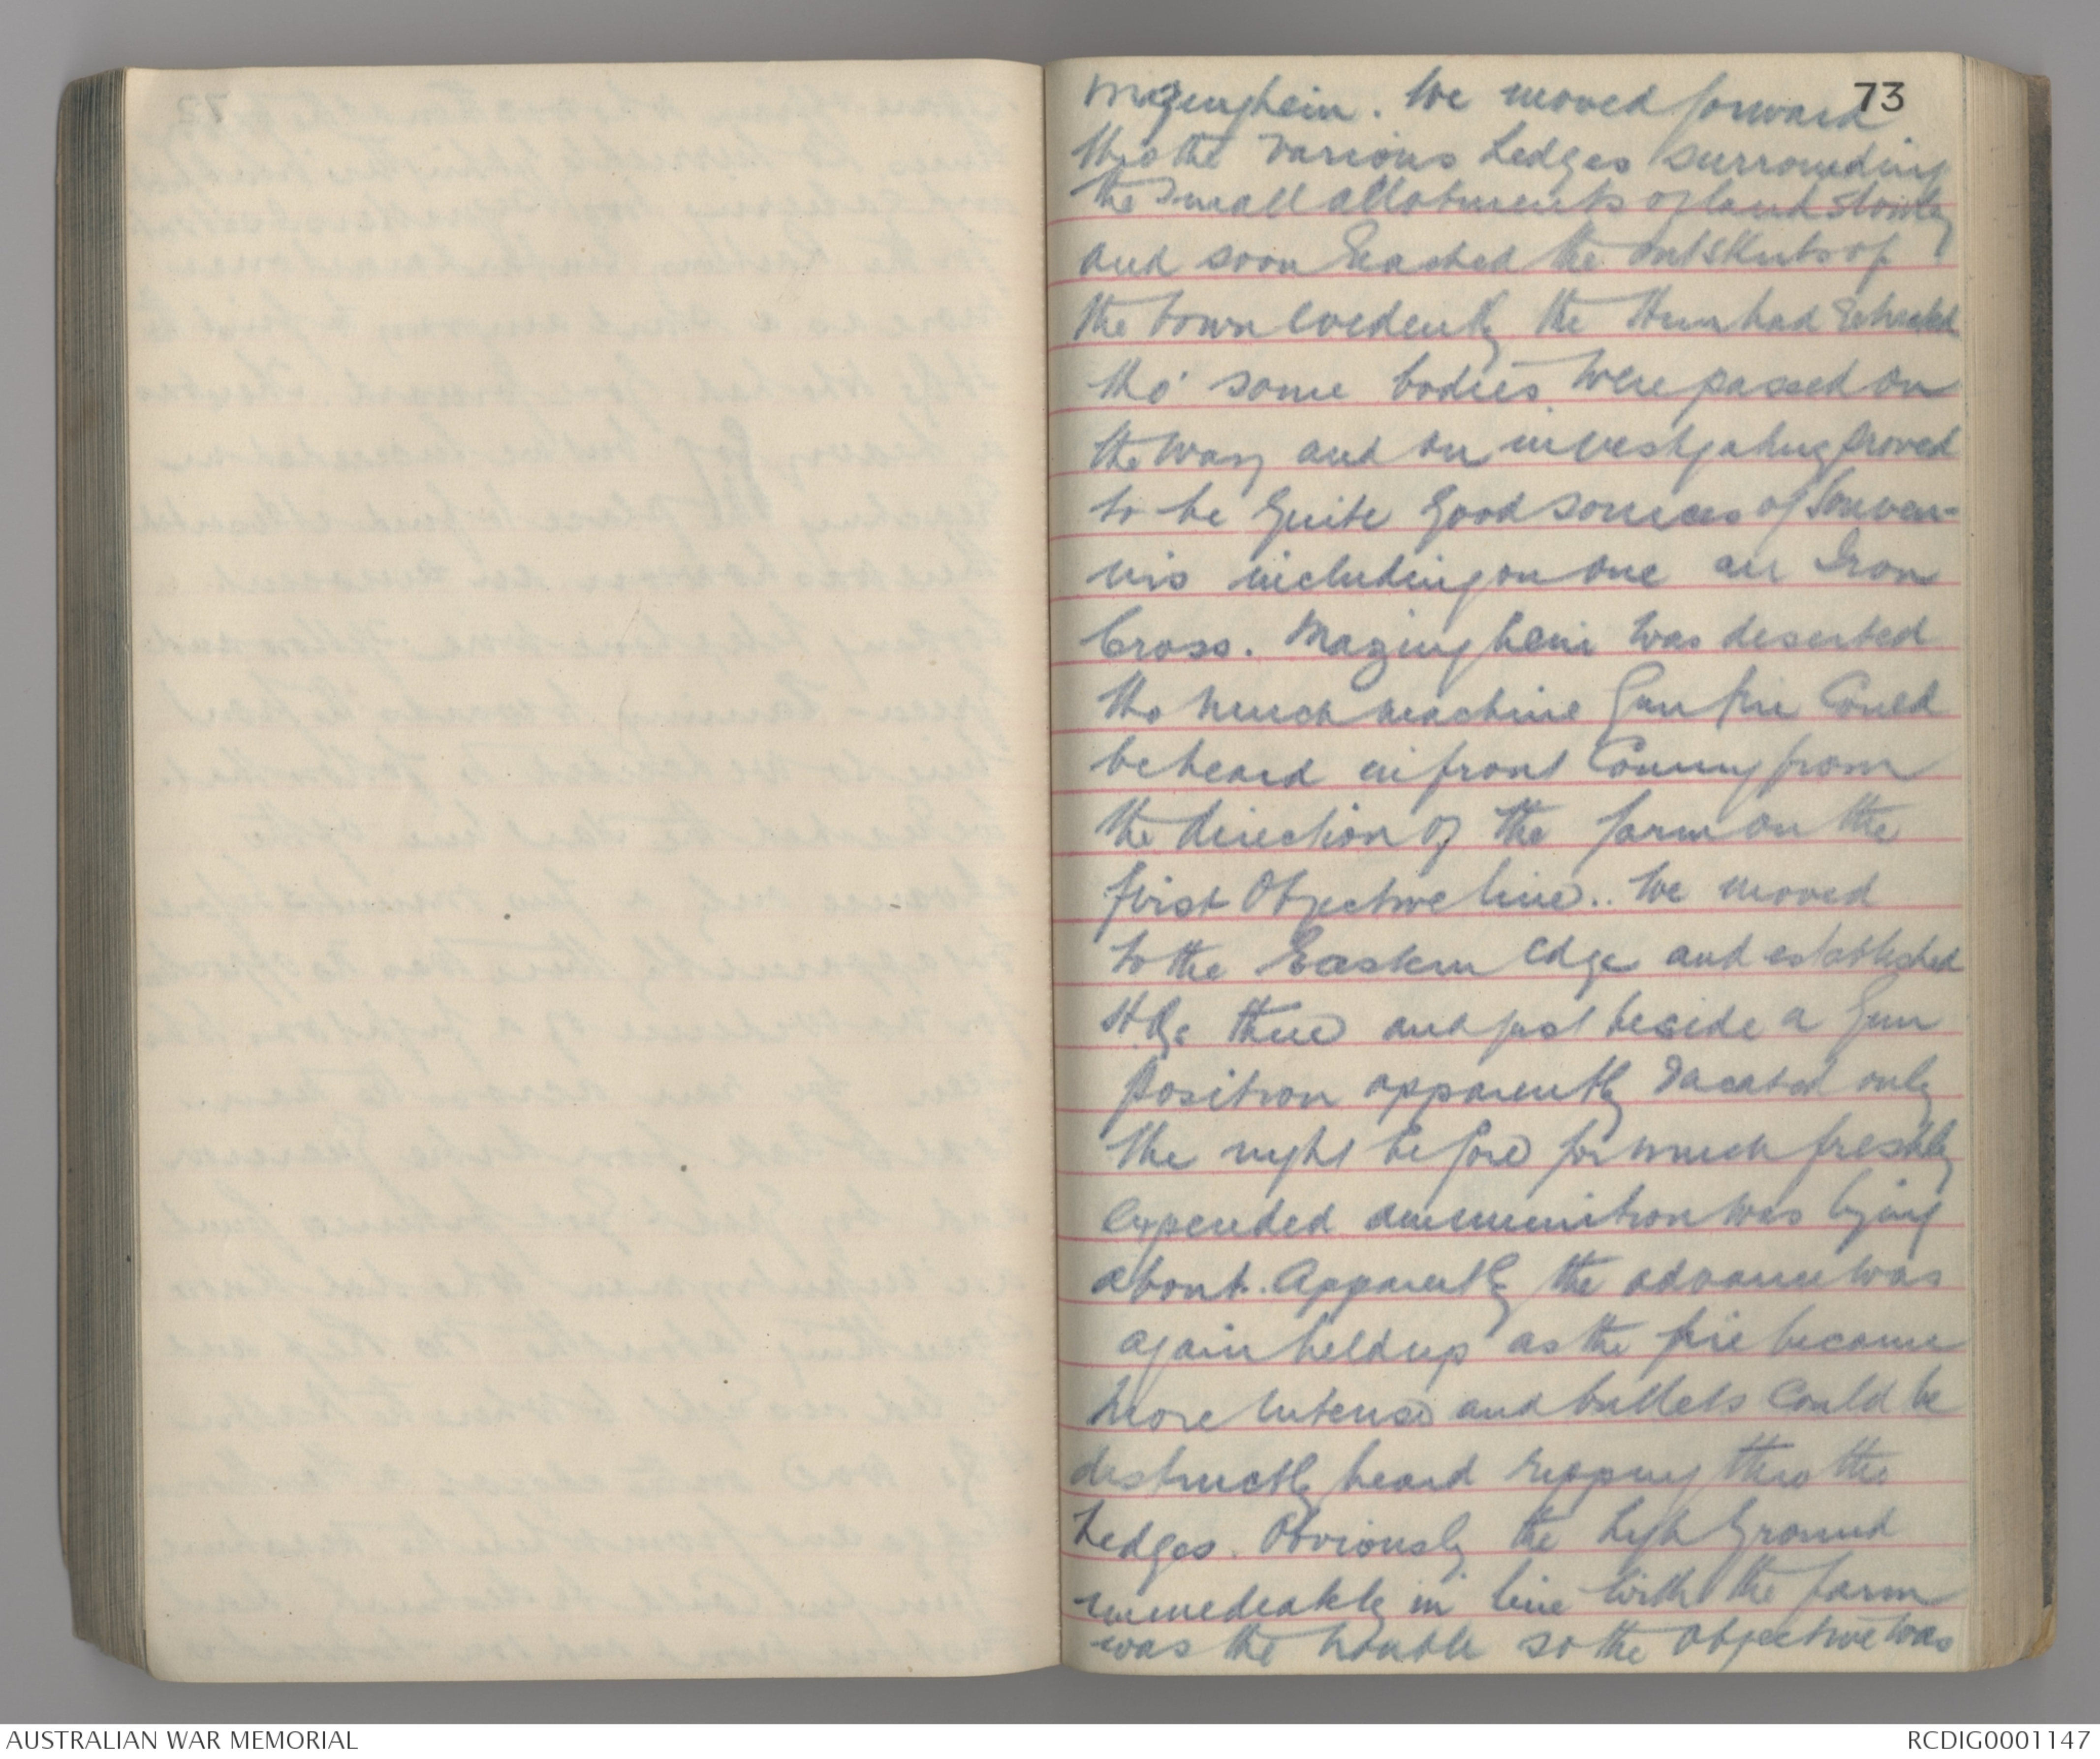 73
Mazinghein. We moved forward
thro the various hedges surrounding
the small allotments of land slowly
and soon reached the outskirts of
the town evidently the Hun had retreated
tho' some bodies were passed on
the way and on investigating proved
to be quite good sources of souven-
irs including on one an Iron
Cross. Mazinghein was deserted
tho much machine gun fire could
be heard in front coming from
the direction of the farm on the
first objective line. We moved
to the Eastern edge and established
H.Q. there and just beside a gun
position apparently vacated only
the night before for much freshly
expended ammunition was lying
about. Apparently the advance was
again held up as the fire became
more intense and bullets could be
distinctly heard ripping thro the
hedges. Obviously the high ground
immediately in line with the farm
was the trouble so the objective was
AUSTRALIAN WAR MEMORIAL
RCDIG0001147